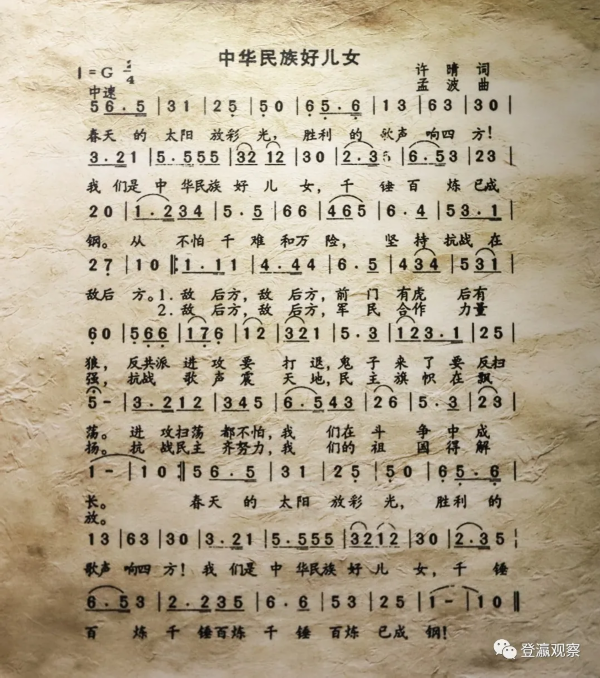 中华民族好儿女
1=G 2/4 许晴 词
中速 孟波 曲
5 6.5 | 3 1 | 2 5 | 5 0 | 6 5.6 | 1 3 | 6 3 | 3 0 |
春天 的 太阳 放彩 光，胜利 的 歌声 响四 方！
3.21 | 5.555 | 32 12 | 30 | 2.35 | 6.53 | 23 |
我 们是 中 华民族 好 儿 女，千 锤 百 炼 已成
20 | 1.234 | 5.5 | 66 | 465 | 6.4 | 53.1 |
钢。从 不怕 千 难 和万 险，坚 持 抗战 在
27 | 10 ‖: 1.11 | 4.44 | 6.5 | 434 | 531 |
敌后 方。1.敌 后方，敌 后方，前 门 有虎 后有
2.敌 后方，敌 后方，军 民 合作 力量
60 | 566 | 176 | 12 | 321 | 5.3 | 123.1 | 25 |
狼，反共派 进攻 要 打 退，鬼 子 来 了 要 反扫
强，抗战 歌 声 震 天 地，民 主 旗 帜 在 飘
5- | 3.212 | 345 | 6.543 | 26 | 5.3 | 23 |
荡。进 攻扫荡 都不怕，我 们在 斗 争 中 成
扬。抗 战民主 齐努力，我 们的 祖 国 得 解
1- | 10 :‖ 5 6.5 | 31 | 25 | 50 | 65.6 |
长。春天 的 太阳 放彩 光，胜利 的
放。
13 | 63 | 30 | 3.21 | 5.555 | 3212 | 30 | 2.35 |
歌声 响四 方！我 们是 中 华民族 好 儿 女，千 锤
6.53 | 2.235 | 6.6 | 53 | 25 | 1- | 10 ‖
百 炼 千 锤百炼 千 锤 百炼 已成 钢！
登瀛观察